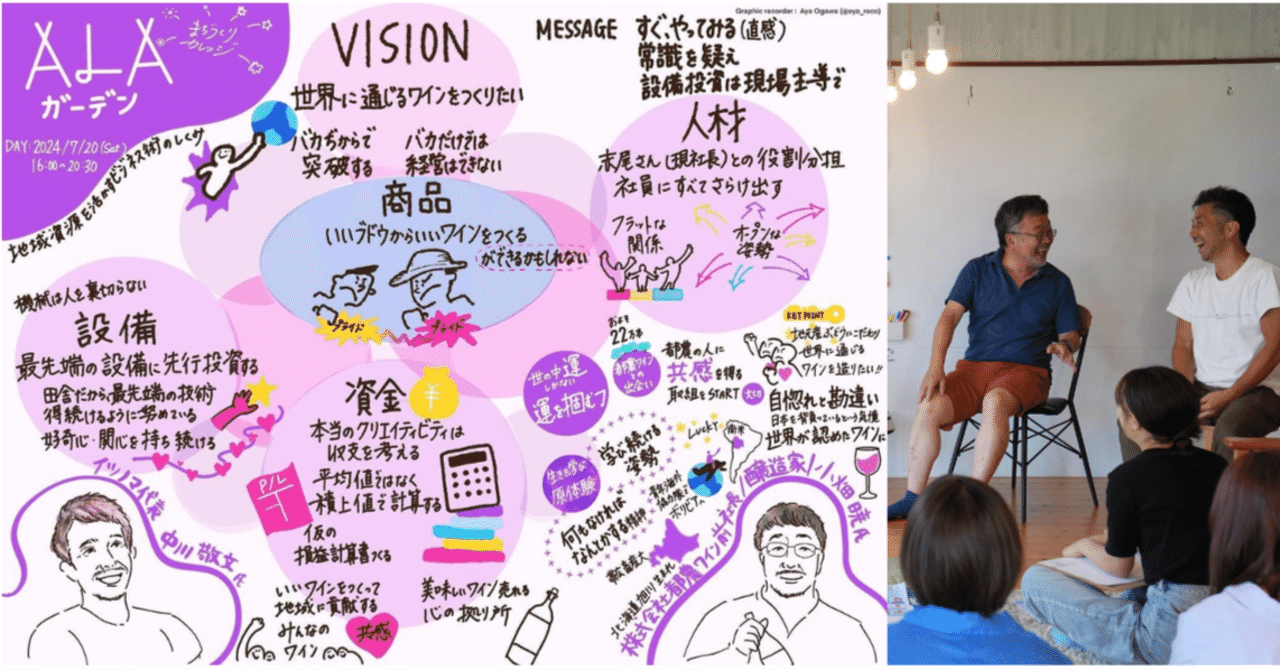 Graphic recorder : Aya Ogawa (@aya_roco)
ALA
まちづくり
カレッジ
ガーデン
DAY: 2024/7/20 (Sat.)
16:00~20:30
地域資源を活かすビジネス術のしくみ
VISION
世界に通じるワインをつくりたい
バカぢからで
突破する
バカだけでは
経営はできない
MESSAGE
すぐ、やってみる(直感)
常識を疑え
設備投資は現場主導で
商品
いいブドウからいいワインをつくる
ができるかもしれない
プライド
プライド
人材
赤尾さん(現社長)との役割分担
社員にすべてさらけ出す
フラットな
関係
オープンな
姿勢
機械は人を裏切らない
設備
最先端の設備に先行投資する
田舎だから最先端の技術
得続けるように努めている
好奇心・関心を持ち続ける
資金
本当のクリエイティビティは
収支を考える
平均値ではなく
積上値で計算する
P/L
仮の
損益計算書つくる
いいワインをつくって
地域に貢献する
みんなの
ワイン
共感
美味しいワイン売れる
心の拠り所
世の中運
しかない
運を掴むつ
22万本
都農ワイン
との
出会い
都農の人に
共感を得る
取組をSTART
KEY POINT
地元産ぶどうにこだわり
世界に通じる
ワインを造りたい!!
自惚れと勘違い
日本を背負っているという気概
世界が認めたワインに
学び続ける
姿勢
Lucky
南米
ボリビアへ
原体験
何もなければ
なんとかする精神
北海道旭川生まれ
イツノマ代表 中川 敬文氏
株式会社都農ワイン前社長/醸造家 小畑 暁氏